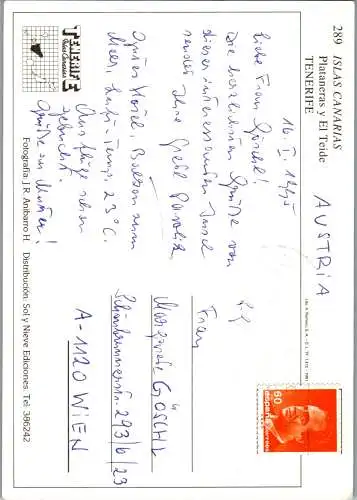 289 ISLAS CANARIAS
Plataneras y El Teide
TENERIFE
16. I. 1995
Liebe Frau Göschl!
Die herzlichsten Grüße von
dieser interessanten Insel
sendet Ihre
Gutes Hotel, Balkon zum
Meer, Luft-Temp. 23°C.
Ausflüge schon
gebucht.
Grüße an Mutter!
AUSTRIA
Frau
Margarete GÖSCHL
Schönbrunnerstr. 293/6/23
A-1120 WIEN
TENERIFE
Islas Canarias
Fotografía: J.R. Anibarro H. Distribución: Sol y Nieve Ediciones. Tel. 386242
60